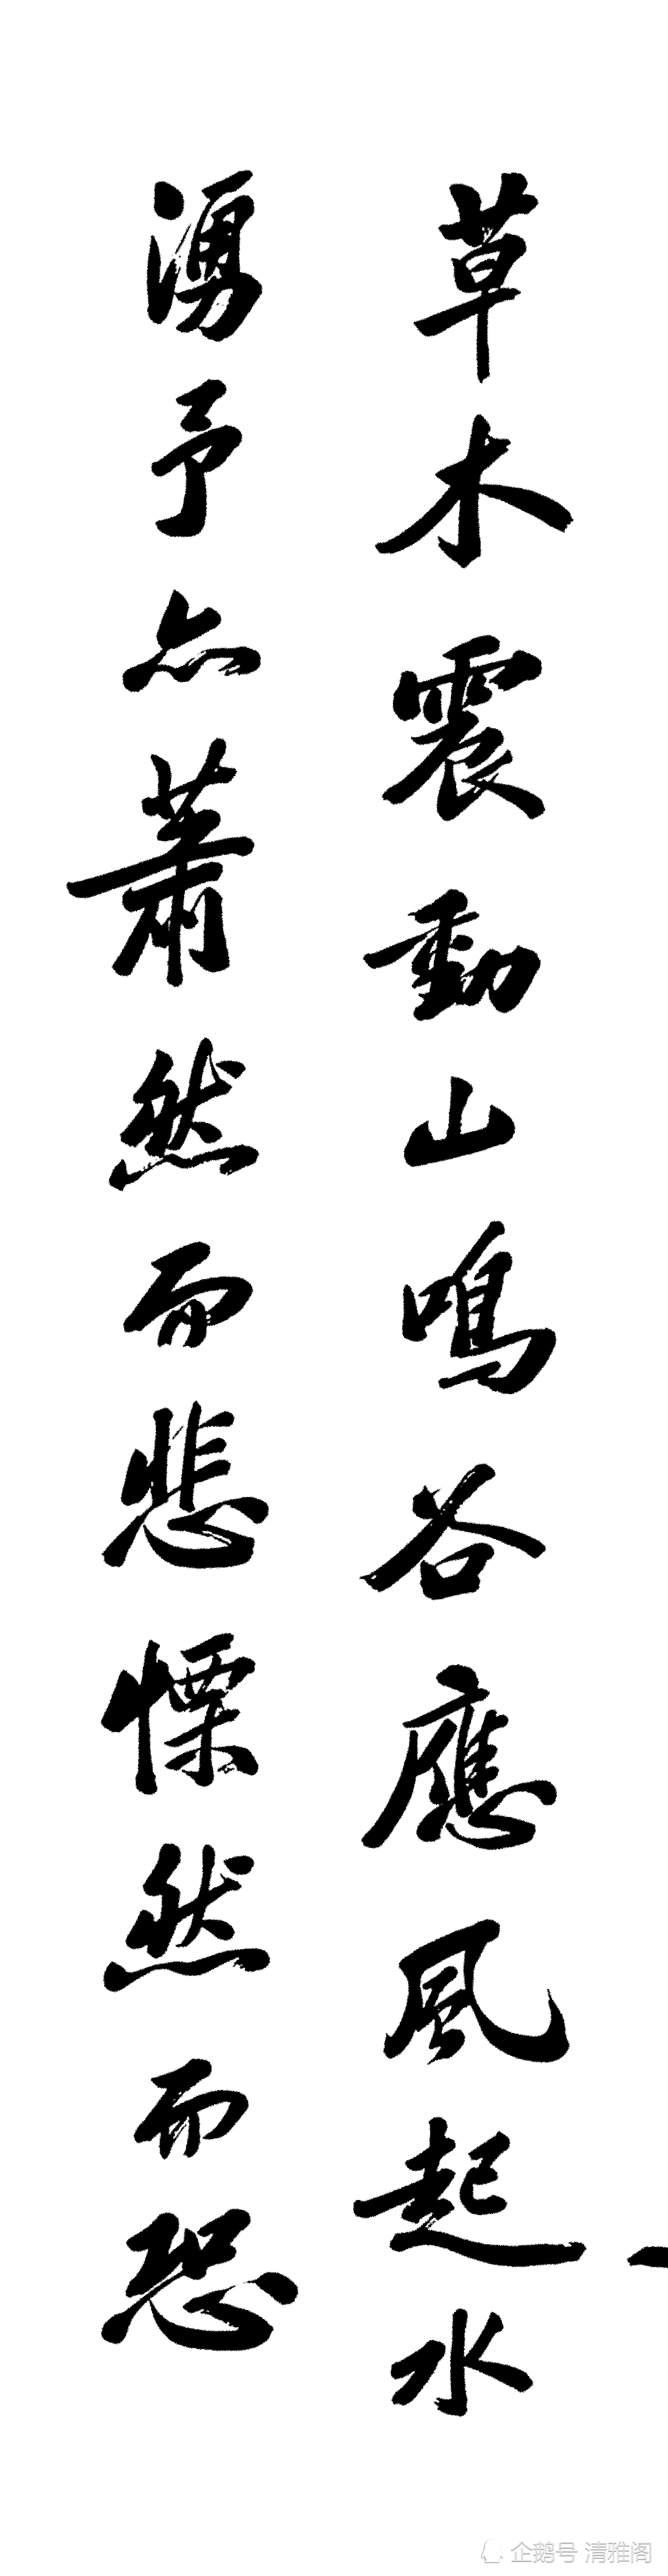 草木震動山鳴谷應風起水
湧予亦蕭然而悲慄然而恐
企鹅号 清雅阁